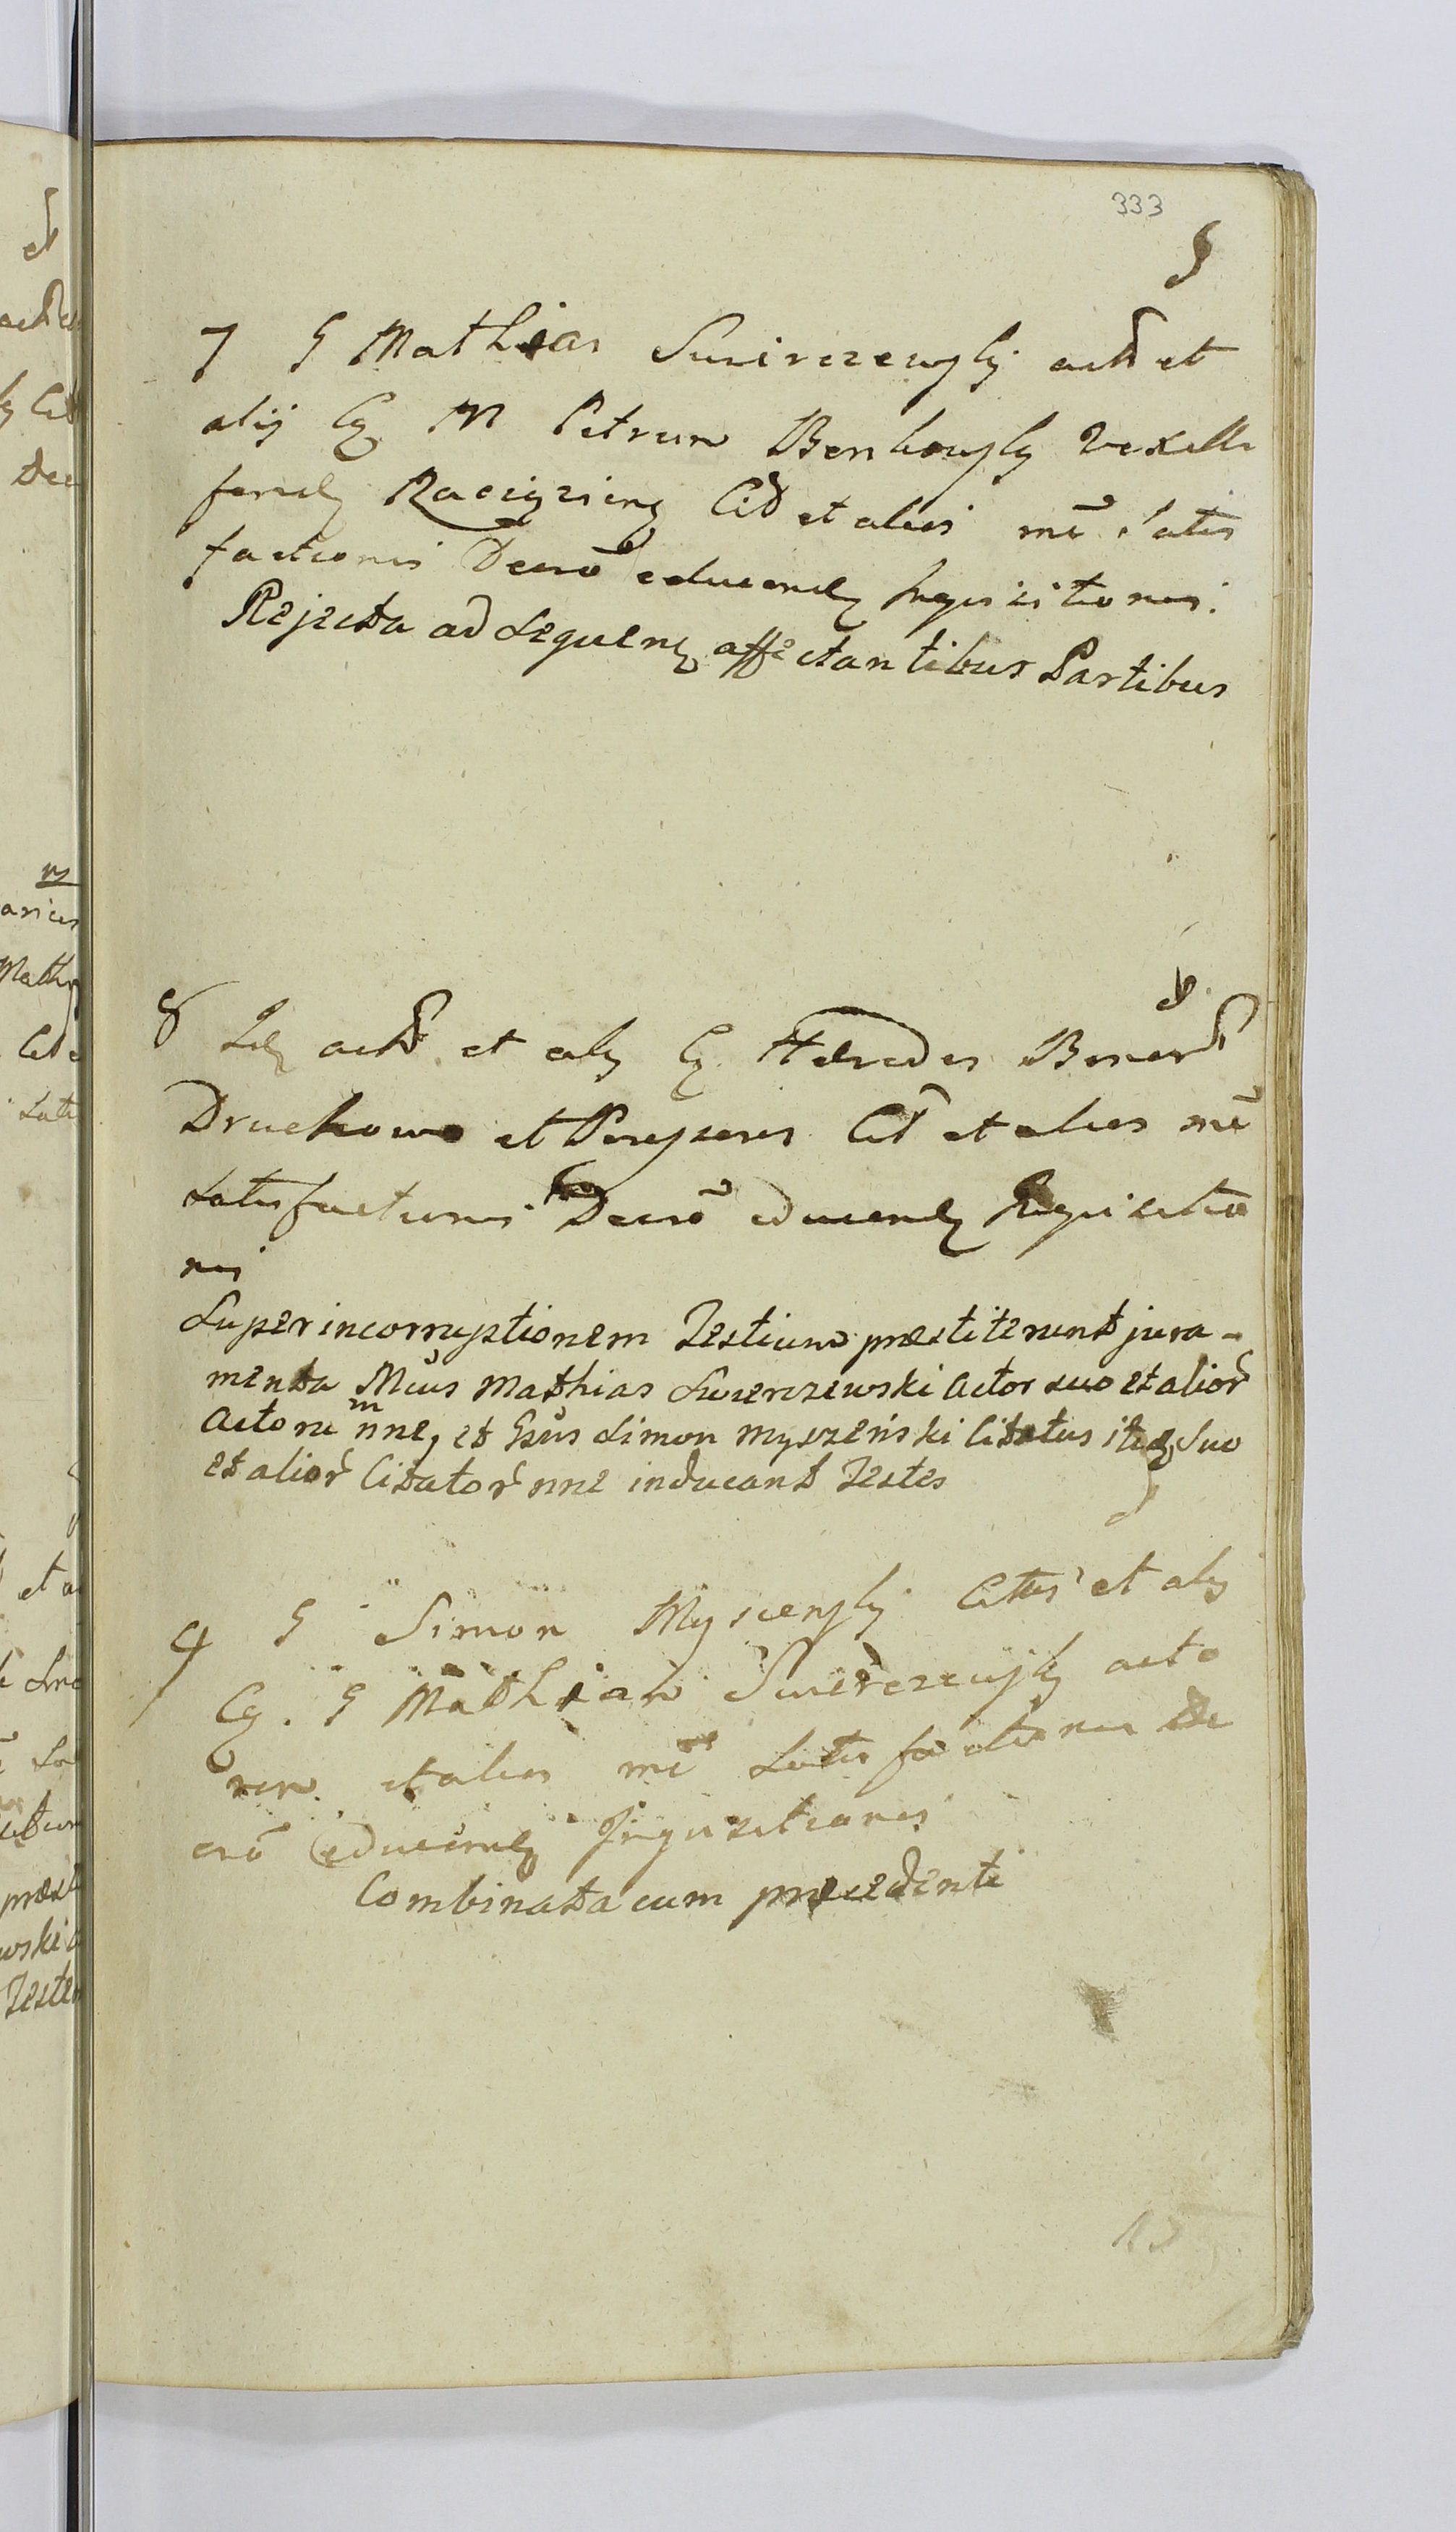 333
7 G Mathias Swirczewsky act et
alij Cq M Petrum Benkowsky Vexelli
ferulq Raciązieng Cit et alios mē Satis
factionis Decrō educendq Inquisitionis.
Rejecta ad sequenq affectantibus Partibus
8 Idq act et alij Cq Hæredes Bonor
Druchowo et Possessores Cit et alios mē
satisfactionis Decrō educendq Inquisitio
nis
Super incorruptionem Testium præstiterunt jura-
menta Mcus Mathias Swierczewski Actor suo et alior
Actoru m nne, et Gsus Simon Myszeński Citatus itq suo
et alior Citator nne inducant Testes
9 G Simon Myszensky Cittus et alij
Cq. G Mathiam Swierczewsky acto
rem et alios mē Satisfactionis De
crō educendq Inquisitionis
Combinata cum præcedenti